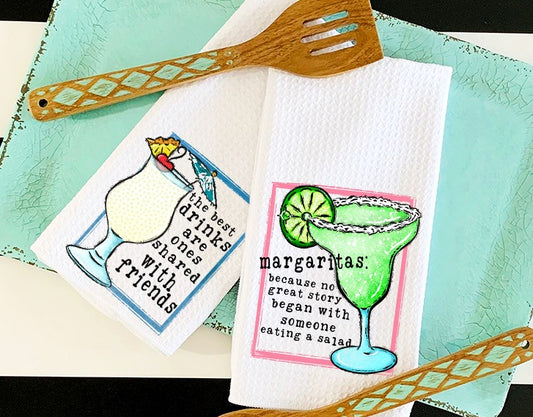 the best
drinks
are
ones
shared
with
friends
margaritas:
because no
great story
began with
someone
eating a salad